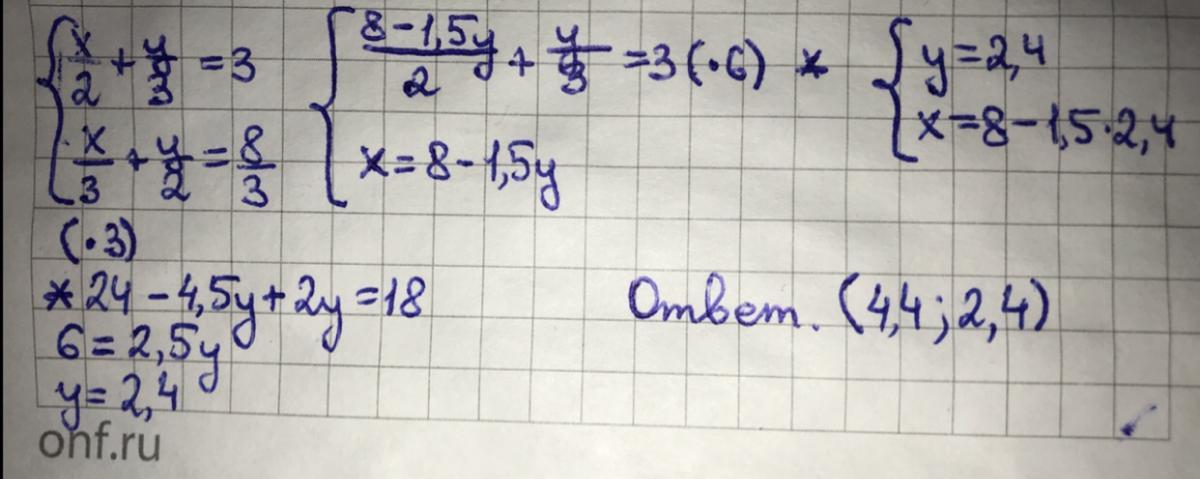 { x/2 + y/3 = 3
x/3 + y/2 = 8/3
(·3)
{ (8-1,5y)/2 + y/3 = 3 (·6) *
x = 8-1,5y
{ y = 2,4
x = 8-1,5·2,4
* 24 - 4,5y + 2y = 18
6 = 2,5y
y = 2,4
Ответ. (4,4; 2,4)
ohf.ru